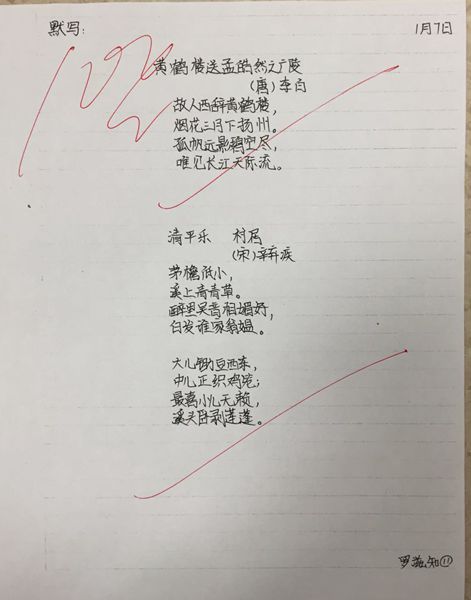 默写:
1月7日
100
黄鹤楼送孟浩然之广陵
(唐) 李白
故人西辞黄鹤楼,
烟花三月下扬州。
孤帆远影碧空尽,
唯见长江天际流。
清平乐 村居
(宋) 辛弃疾
茅檐低小,
溪上青青草。
醉里吴音相媚好,
白发谁家翁媪。
大儿锄豆西东,
中儿正织鸡笼;
最喜小儿无赖,
溪头卧剥莲蓬。
罗海知⑪